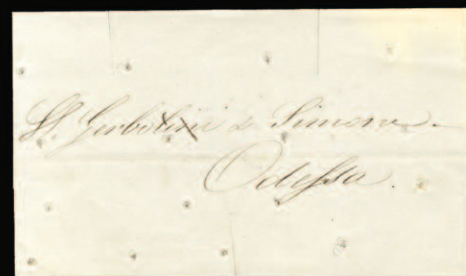 Gerbolini & Simone
Odessa.